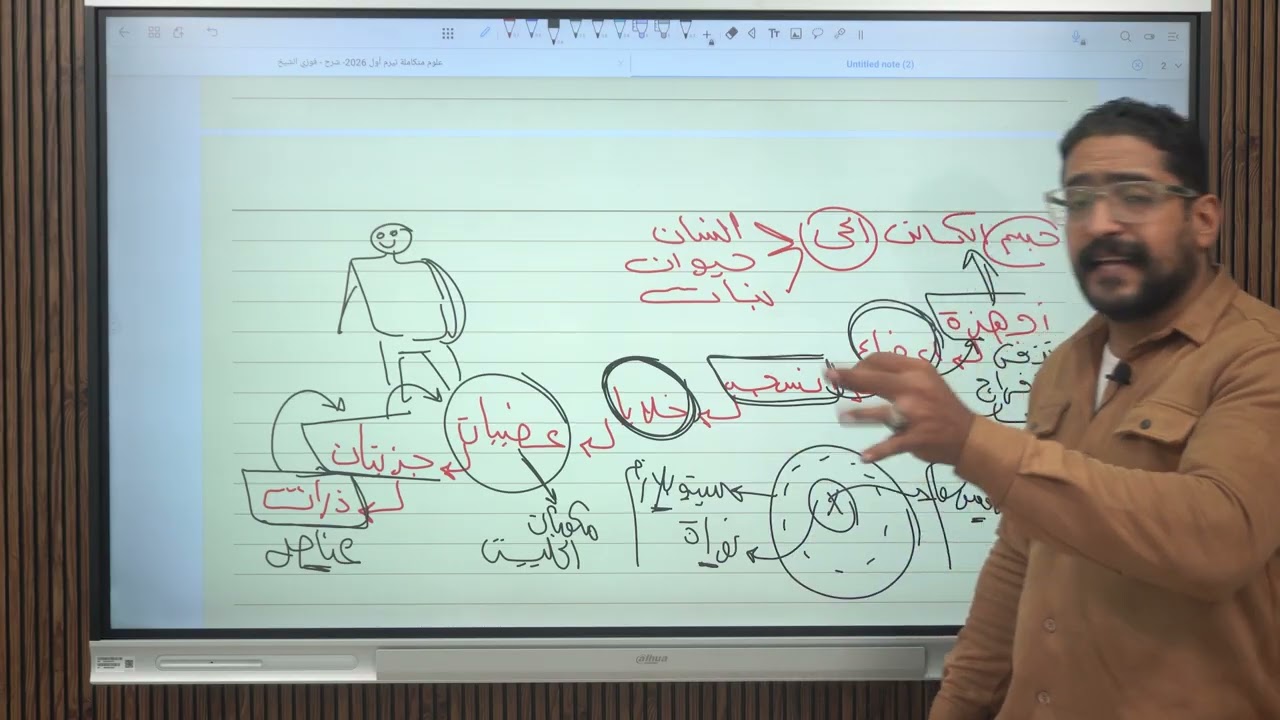 علوم متكاملة تيرم أول 2026- شرح - فوزي الشيخ
Untitled note (2)
2
Tr
جسم الكائن الحى
انسان
حيوان
نبات
أجهزة
أعضاء
أنسجه
خلايا
عضيات
جزيئات
ذرات
عناصر
مكونات
الخلية
سيتوبلازم
نواة
alhua